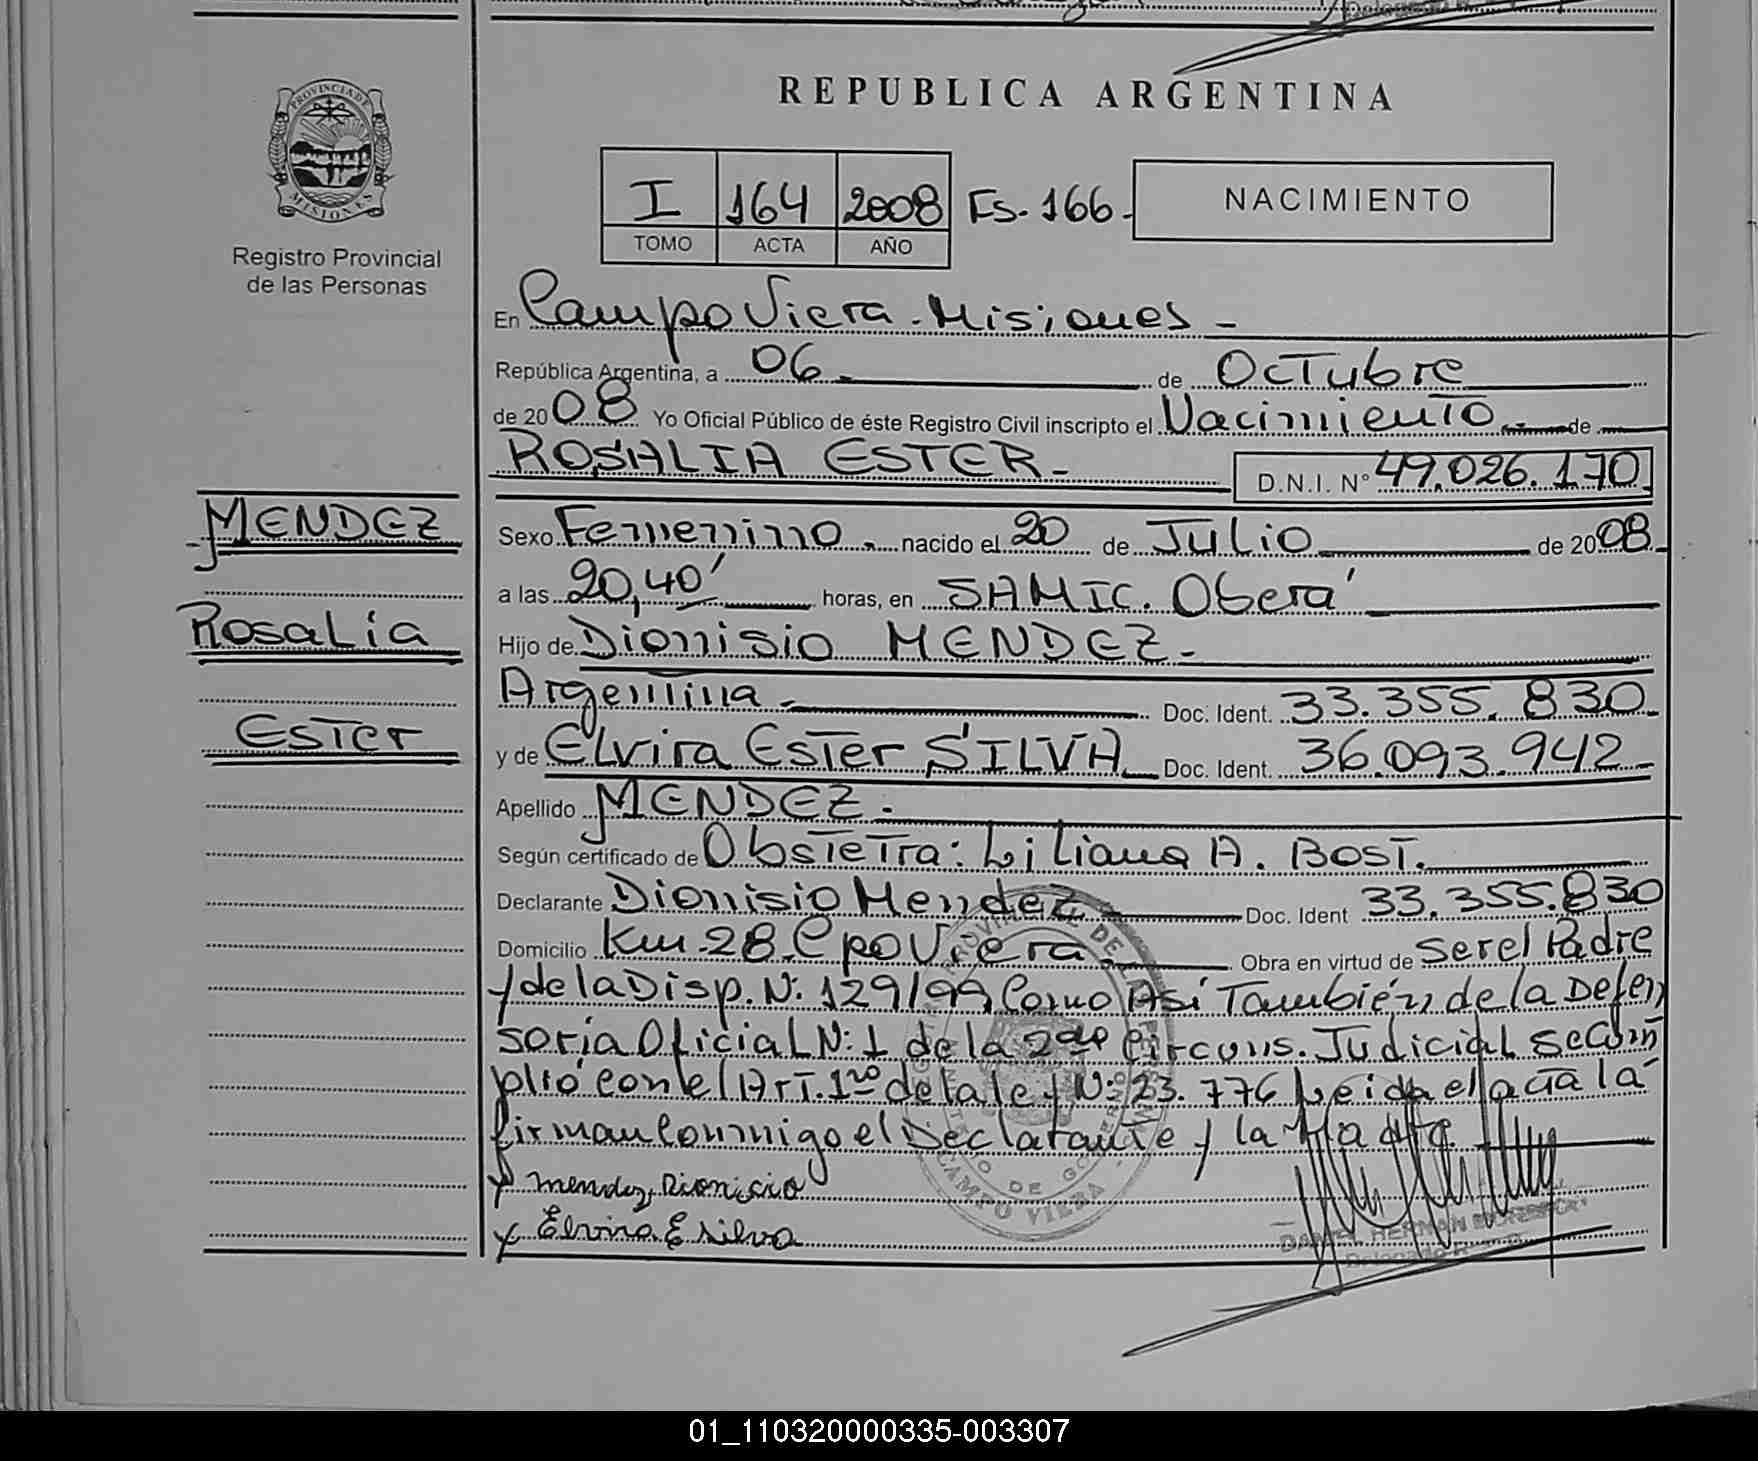 REPUBLICA ARGENTINA
PROVINCIA DE
MISIONES
Registro Provincial
de las Personas
I 164 2008 Fs. 166.
TOMO ACTA AÑO
NACIMIENTO
En Campo Viera. Misiones
República Argentina, a 06 de OcTubre
de 2008 Yo Oficial Público de éste Registro Civil inscripto el Nacimiento de
ROSALIA ESTER D.N.I. N° 49.026.170
MENDEZ
Rosalia
Ester
Sexo Femenino. nacido el 20 de Julio de 2008
a las 20,40' horas, en SAMIC. Oberá
Hijo de Dionisio MENDEZ
Argentina Doc. Ident. 33.355.830
y de Elvira Ester SILVA Doc. Ident. 36.093.942
Apellido MENDEZ.
Según certificado de Obstetra: Liliana A. BOST.
Declarante Dionisio Mendez Doc. Ident 33.355.830
Domicilio Km. 28. Cpo Viera Obra en virtud de ser el Padre
y de la Disp. N: 129/99, Como Así También de la Defen
soria Oficial N: 1 de la 2da Circuns. Judicial se Cum
plió con el ArT. 1ro de la ley N: 23.776 Leida el acta la
firman Conmigo el Declarante y la Madre
x Mendez, Dionicio
x Elvira E Silva
CAMPO VIERA
DANIEL HERNAN
01_110320000335-003307